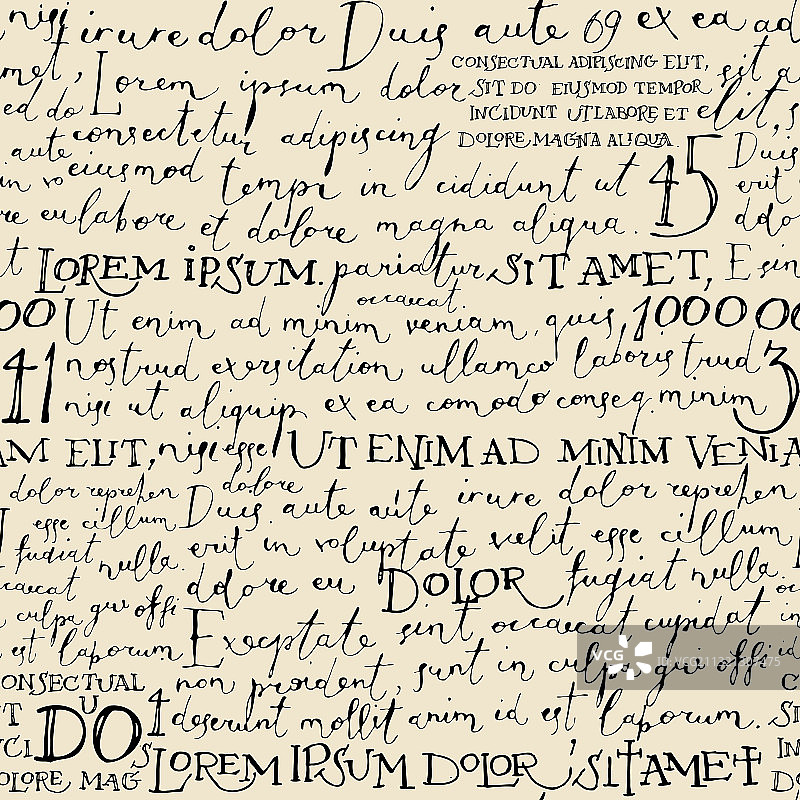 nisi irure dolor Duis aute 69 ex ea ad
met, Lorem ipsum dolor CONSECTUAL ADIPISCING ELIT, sit a
SIT DO EIUSMOD TEMPOR
ed do consectetur adipiscing INCIDUNT UT LABORE ET elit, s
DOLORE MAGNA ALIQUA.
aute eiusmod tempr in cididunt ut 45 Duis
in vo erit
re eu labore et dolore magna aliqua. ddo
t LOREM IPSUM. pariatur SIT AMET, E sin
occaecat.
00 Ut enim ad minim veniam, quis, 1000 00
41 nostrud exersitation ullamco laboris trud 3
nisi ut aliquip ex ea comodo conseq. minim
AM ELIT, nisi esse UT ENIM AD MINIM VENIA
dolor reprehen dolore
esse cillum Duis aute aute irure dolor reprehen
fugiat nulla. erit in voluptate velit esse cillum
caecat ddore eu DOLOR fugiat nulla.
culpa qui offi Excptate sint occaecat cupidat in
est laborum.
CONSECTUAL non proident, sunt in culpa qui offi id
U
DO 1 deserunt mollit anim id est laborum.
OLORE MAG LOREM IPSUM DOLOR, SIT AMET
VCG